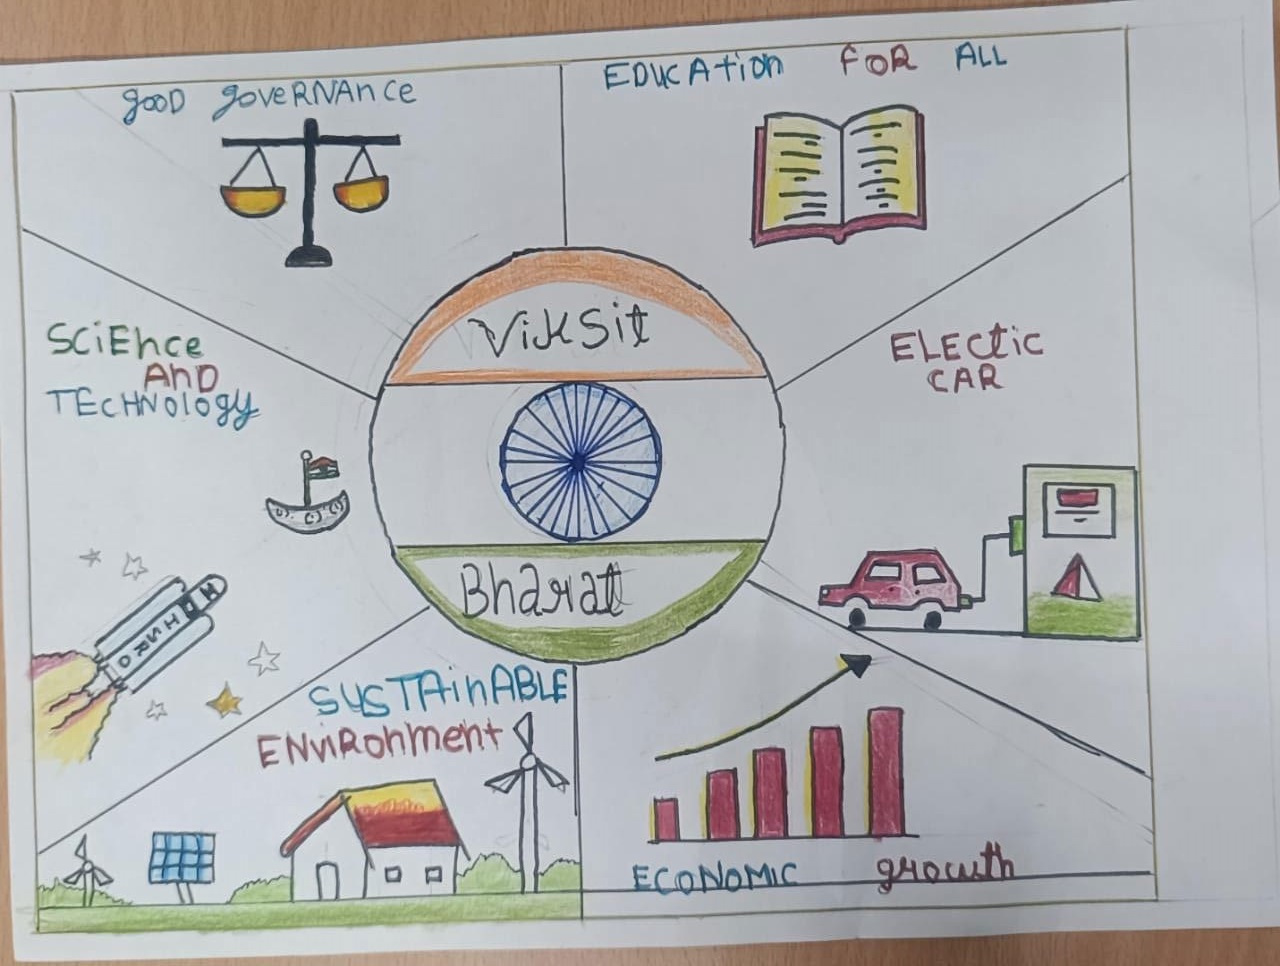 gooD goveRNAnce
EDUCATion FOR ALL
ViKSit
SCiEhce
AnD
TECHNOlOgy
ELECtic
CAR
Bharat
ISRO
SUSTAinABLE
ENViROnment
ECONOMIC growth